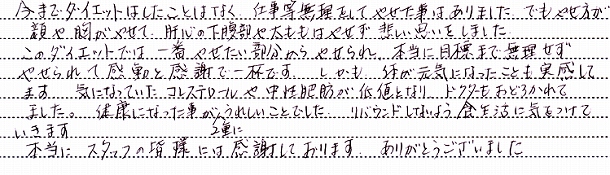 今までダイエットはしたことはなく、仕事等無理をしてやせた事はありました でもやせ方が
顔や胸がやせて、肝心の下腹部や太ももはやせず悲しい思いをしました
このダイエットでは一番やせたい部分からやせられ、本当に目標まで無理せず
やせられて感動と感謝で一杯です。しかも 体が元気になったことも実感して
ます 気になっていた コレステロールや中性肥肪が低値となり ドクターもおどろかれて
ました。 健康になった事が2重にうれしいことでした リバウンドしないよう食生活に気をつけて
いきます
本当に スタッフの皆様には感謝しております ありがとうございました